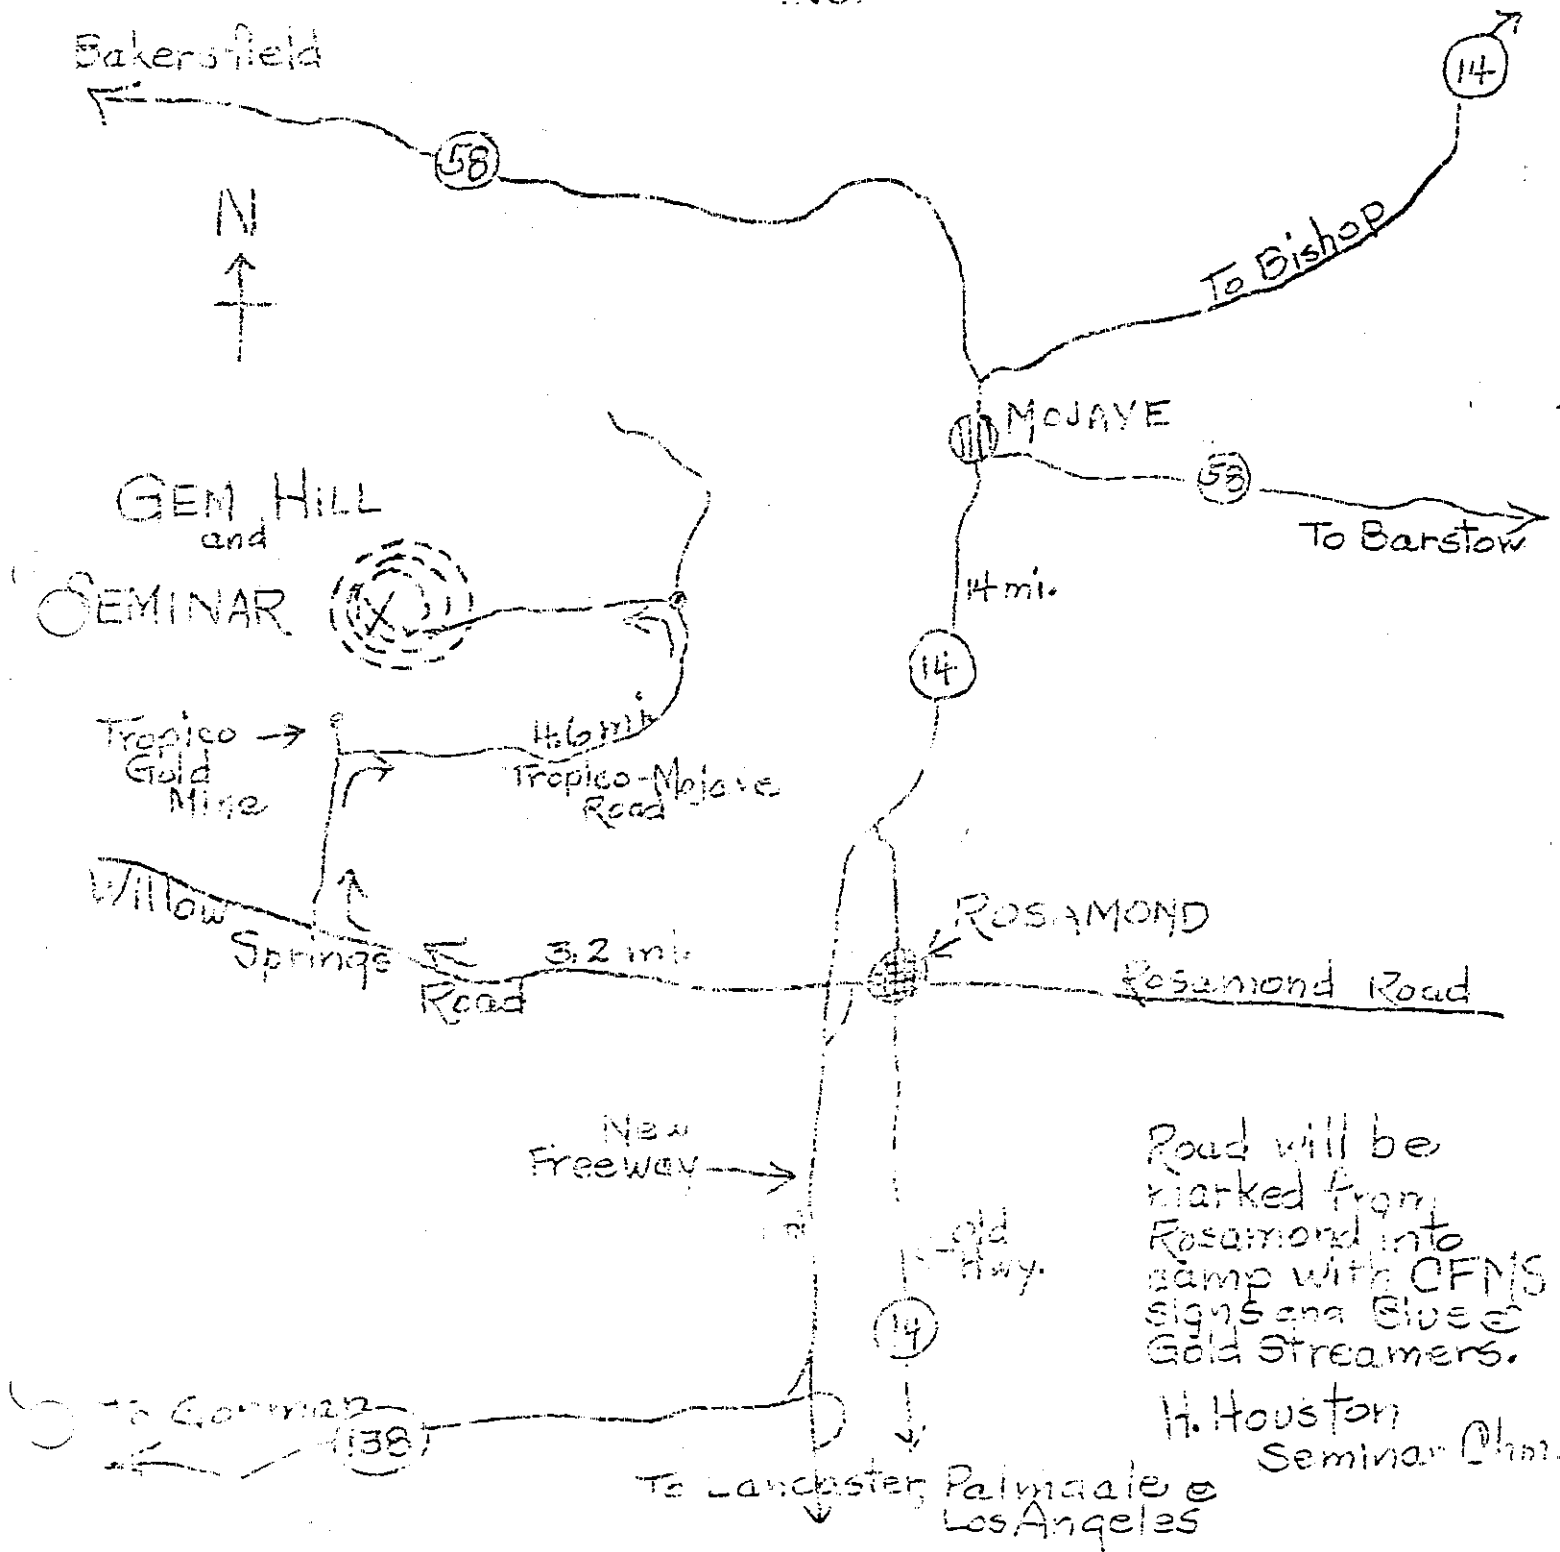 INC.
Bakersfield
14
58
N
To Bishop
MOJAVE
58
To Barstow
GEM HILL
and
SEMINAR
X
14 mi.
14
Tropico
Gold
Mine
4.6 mi.
Tropico-Mojave
Road
Willow
Springs
Road
3.2 mi.
ROSAMOND
Rosamond Road
New
Freeway
old
Hwy.
14
Road will be
marked from
Rosamond into
camp with CFMS
signs and Blue &
Gold Streamers.
H. Houston
Seminar Chm.
To Gorman
138
To Lancaster, Palmdale &
Los Angeles